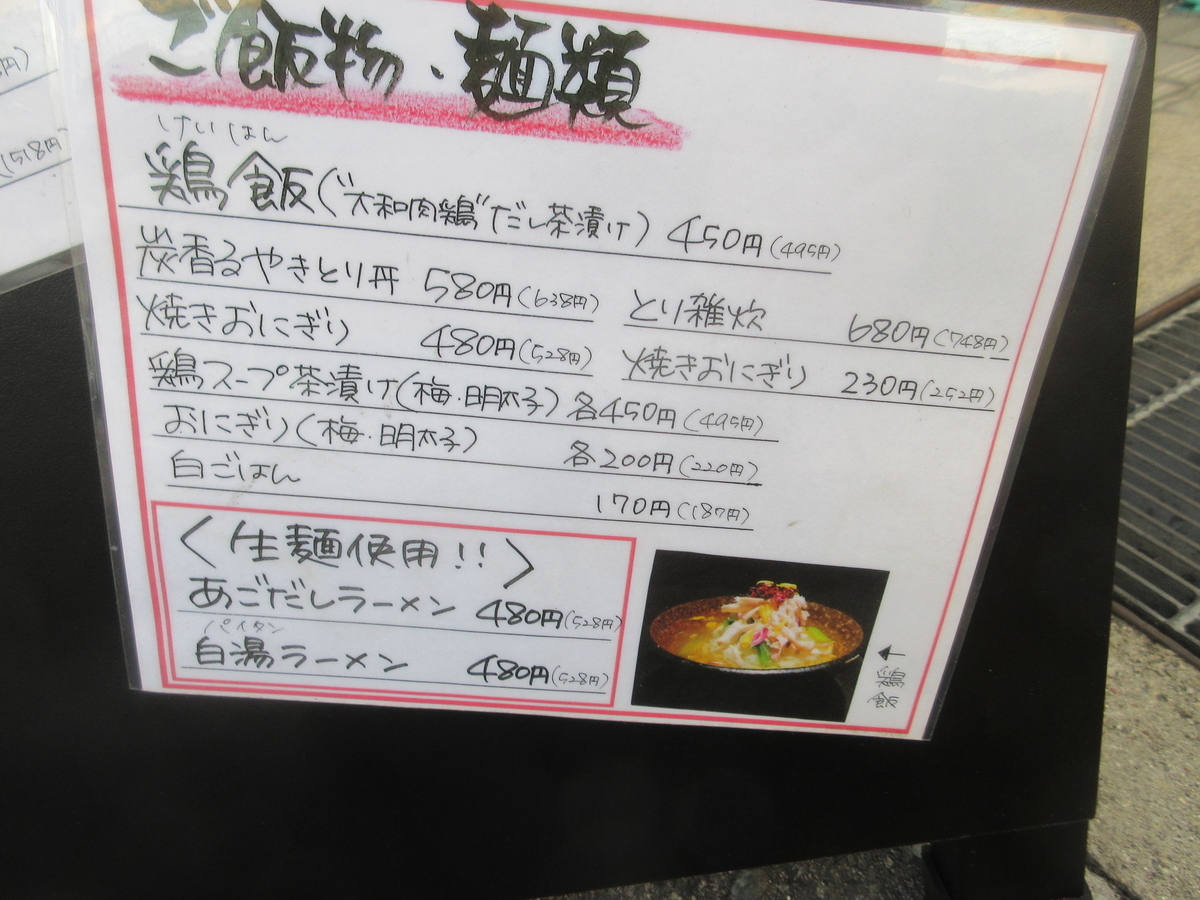 ご飯物・麺類
けいはん
鶏飯("大和肉鶏"だし茶漬け) 450円(495円)
炭香るやきとり丼 580円(638円)
とり雑炊 680円(748円)
焼きおにぎり 480円(528円)
焼きおにぎり 230円(252円)
鶏スープ茶漬け(梅・明太子) 各450円(495円)
おにぎり(梅・明太子) 各200円(220円)
白ごはん 170円(187円)
〈生麺使用!!〉
あごだしラーメン 480円(528円)
パイタン
白湯ラーメン 480円(528円)
←
鶏飯
円)
(518円)